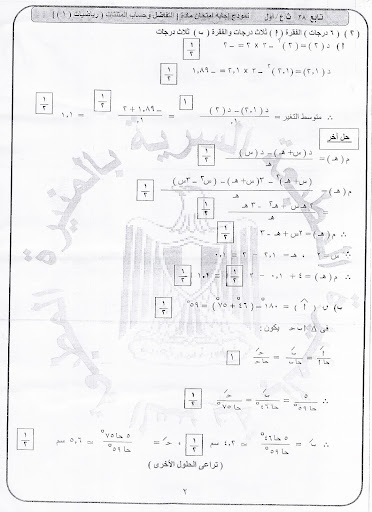 تابع ٢٨ ث ع / أول نموذج إجابة امتحان مادة [ التفاضل وحساب المثلثات ( رياضيات ( ١ ) ) ]
( ٣ ) ( ٦ درجات ) الفقرة ( أ ) ثلاث درجات والفقرة ( ب ) ثلاث درجات
أ ) د ( ٢ ) = ٢ × ٣ = – ٢
د ( ٢,١ ) = ( ٢,١ )٢ – ٣ × ٢,١ = – ١,٨٩ ١/٢
∴ متوسط التغير = د ( ٢,١ ) – د ( ٢ ) / ٠,١ ١ = – ١,٨٩ + ٢ / ٠,١ ١/٢ = ١,١ ١/٢
حل آخر
م ( هـ ) = د ( س + هـ ) – د ( س ) / هـ ١/٢
م ( هـ ) = ( س + هـ )٢ – ٣ ( س + هـ ) – ( س٢ – ٣ س ) / هـ ١/٢
= ٢ هـ س + هـ٢ – ٣ هـ / هـ ١/٢
∴ م ( هـ ) = ٢ س + هـ – ٣ ١/٢
∴ س = ٢ ، هـ = ٢,١ – ٢ = ٠,١
∴ م ( هـ ) = ٤ + ٠,١ – ٣ ١/٢ = ١,١ ١/٢
ب ) ق ( أ ) = ١٨٠° – ( ٤٦° + ٧٥° ) = ٥٩° ١/٢
فى Δ أ ب جـ يكون :
أَ / حا أ = بَ / حا ب = جـَ / حا جـ ١
∴ ٥ / حا ٥٩° = بَ / حا ٤٦° = جـَ / حا ٧٥° ١/٢
∴ بَ = ٥ حا ٤٦° / حا ٥٩° = ٤,٢ سم ١/٢ ، جـَ = ٥ حا ٧٥° / حا ٥٩° = ٥,٦ سم ١/٢
( تراعى الحلول الأخرى )
٢